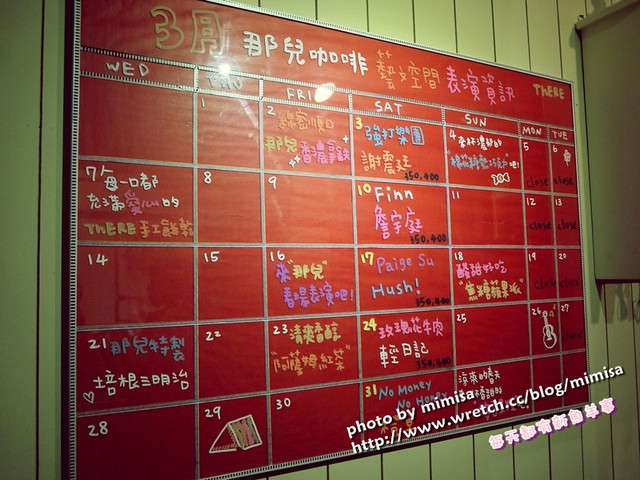 3月 那兒咖啡 藝文空間 表演資訊 THERE
WED THU FRI SAT SUN MON TUE
1
2
那兒
香濃拿鐵
3 強打樂團
謝震廷
350.400
4 來杯濃郁的
棉花糖熱巧克力"吧!
5
close
6
close
7 每一口都
充滿愛心的
THERE手工餅乾
8
9
10 Finn
詹宇庭
350.400
11
12
close
13
close
14
15
16 來"那兒"
看場表演吧!
17 Paige Su
Hush!
350.400
18 酸甜好吃
"焦糖蘋果派"
19
close
20
close
21 那兒特製
培根三明治
22
23 清爽香醇
"阿薩姆紅茶"
24 玫瑰花牛肉
輕日記
350.400
25
26
27
close
28
29
30
31 No Money
No Honey
涼爽的春天
photo by mimisa
http://www.wretch.cc/blog/mimisa
每天都有新鮮事